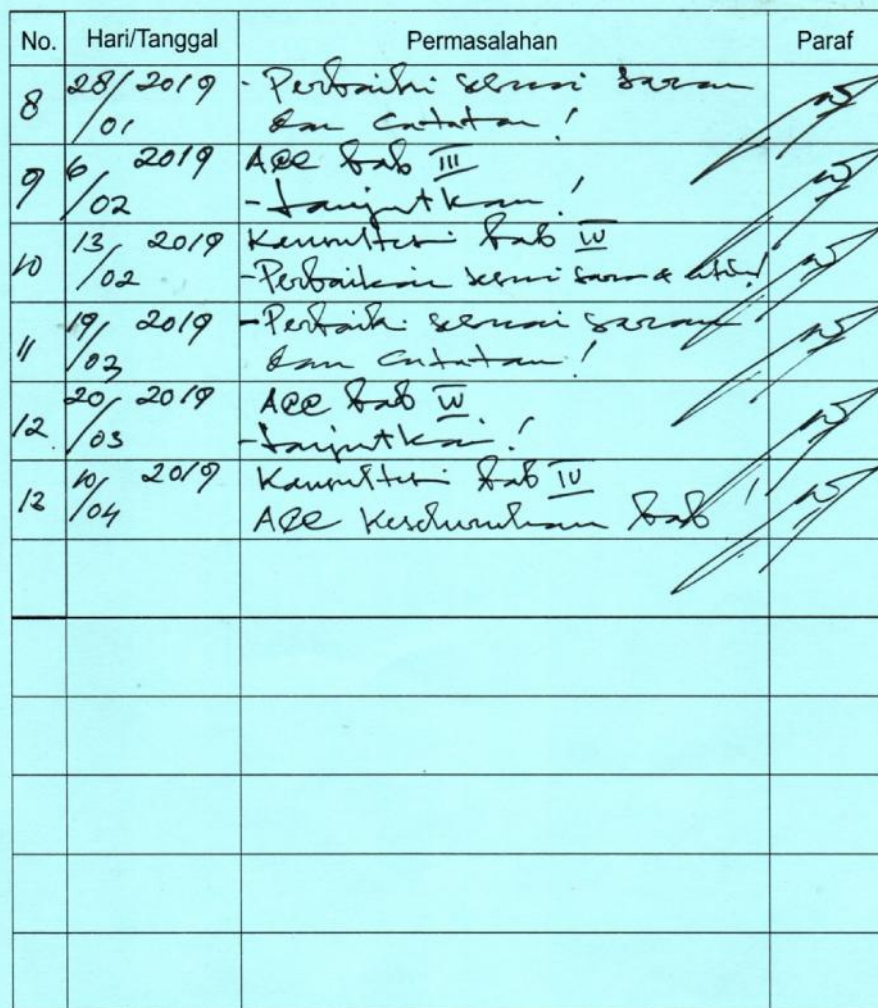 No. Hari/Tanggal Permasalahan Paraf
8 28/01 2019 - Perbaiki sesuai saran
dan catatan !
9 6/02 2019 ACC bab III
- Lanjutkan !
10 13/02 2019 Konsultasi bab IV
- Perbaikan sesuai saran &
11 19/03 2019 - Perbaiki sesuai saran
dan catatan !
12 20/03 2019 ACC bab IV
- Lanjutkan !
13 10/04 2019 Konsultasi bab IV
ACC Keseluruhan bab !